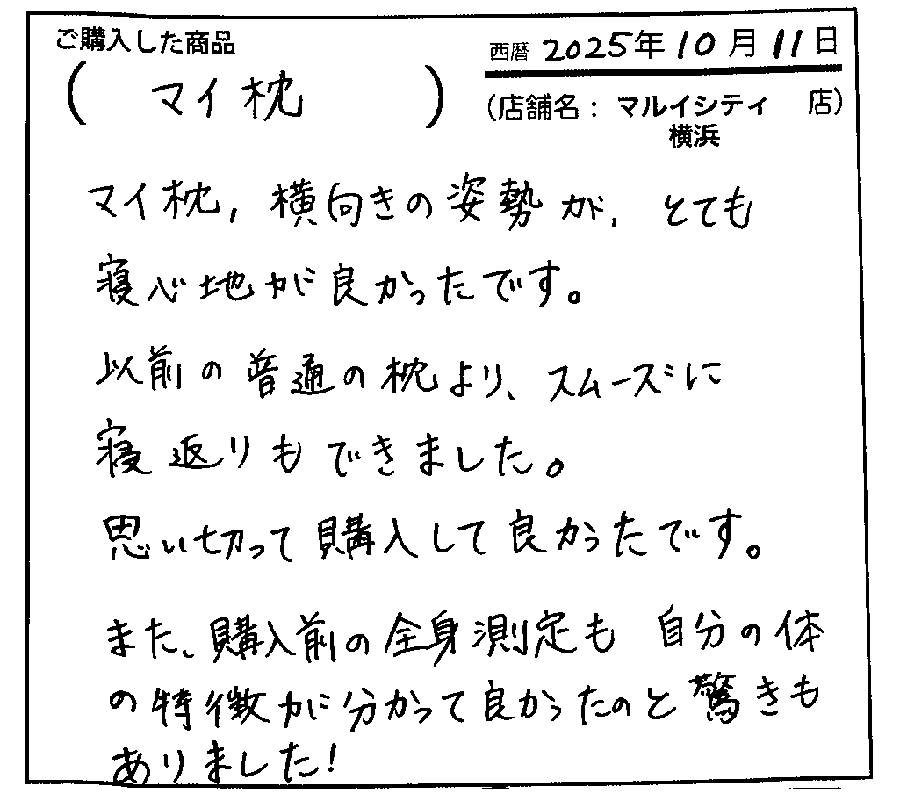 ご購入した商品
西暦 2025年 10月 11日
( マイ枕 )
(店舗名: マルイシティ 店)
横浜
マイ枕, 横向きの姿勢が, とても
寝心地が良かったです。
以前の普通の枕より、スムーズに
寝返りもできました。
思い切って購入して良かったです。
また、購入前の全身測定も 自分の体
の特徴が分かって良かったのと驚きも
ありました!